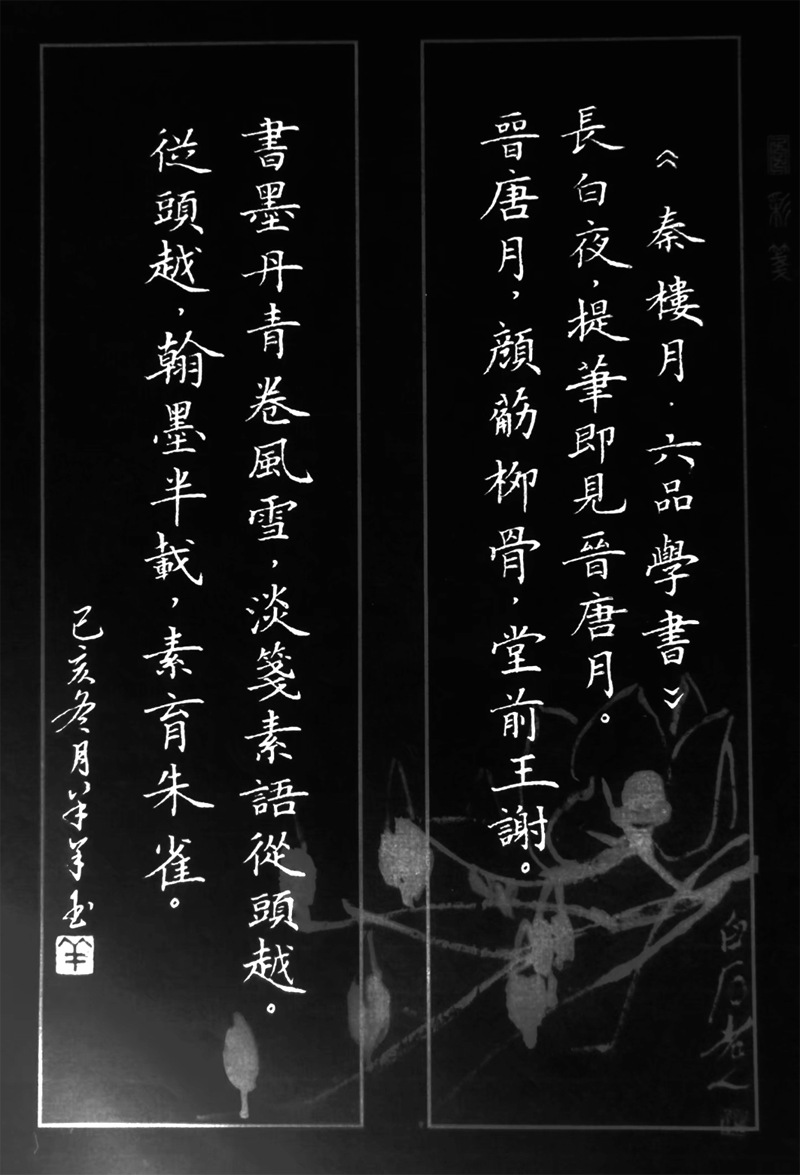 《秦樓月·六品學書》
長白夜，提筆即見晉唐月。
晉唐月，顔筋柳骨，堂前王謝。
書墨丹青卷風雪，淡箋素語從頭越。
從頭越，翰墨半載，素育朱雀。
己亥冬月羊羊書
白石老人